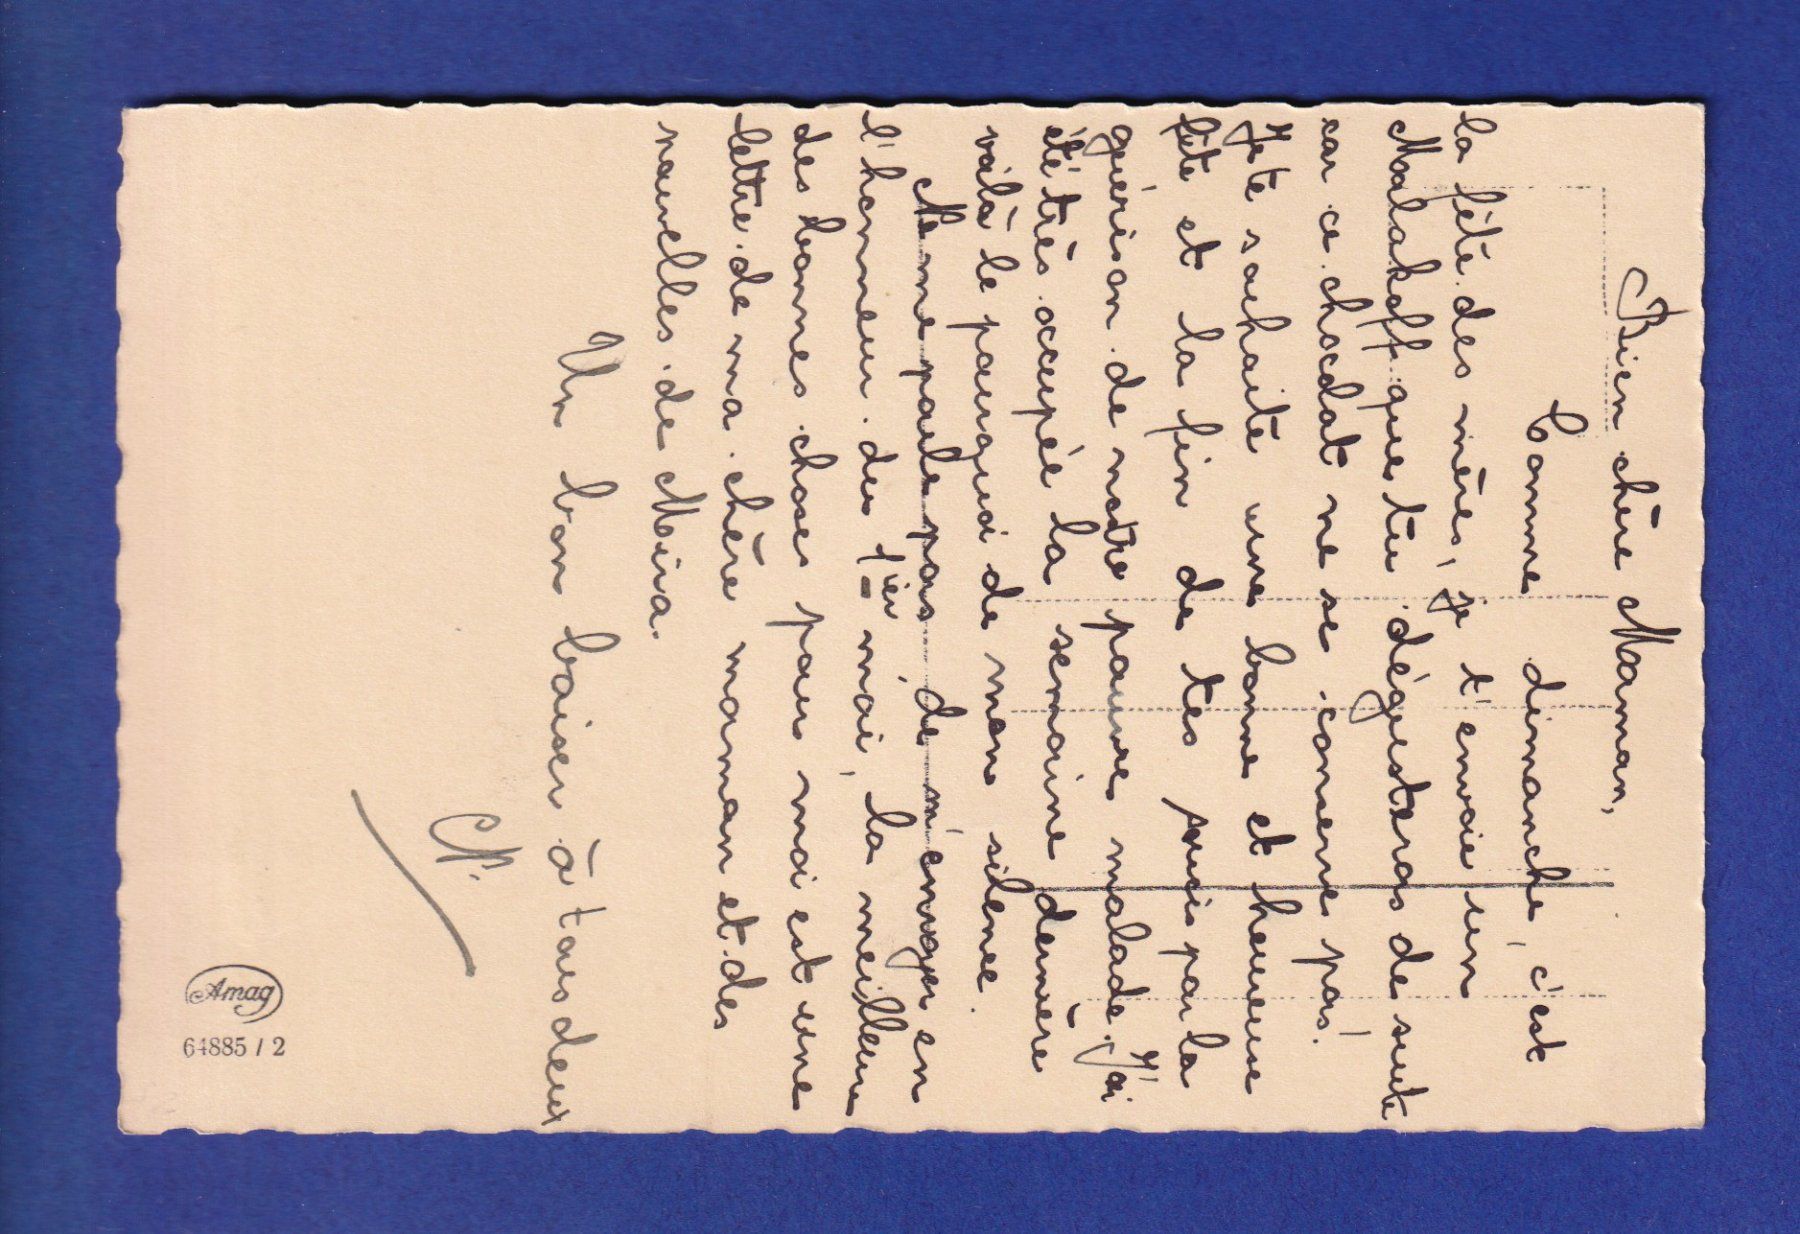 Bien chère Maman,
Comme dimanche, c'est
la fête des mères, je t'envoie un
Malakoff que tu dégusteras de suite
car ce chocolat ne se conserve pas!
Je te souhaite une bonne et heureuse
fête et la fin de tes soucis par la
guérison de notre pauvre malade. J'ai
été très occupée la semaine dernière
voilà le pourquoi de mon silence.
Ne me parle pas de m'envoyer en
l'honneur du 1er mai, la meilleure
des bonnes choses pour moi est une
lettre de ma chère maman et des
nouvelles de Moira.
Un bon baiser à tous deux
Amag
64885 / 2